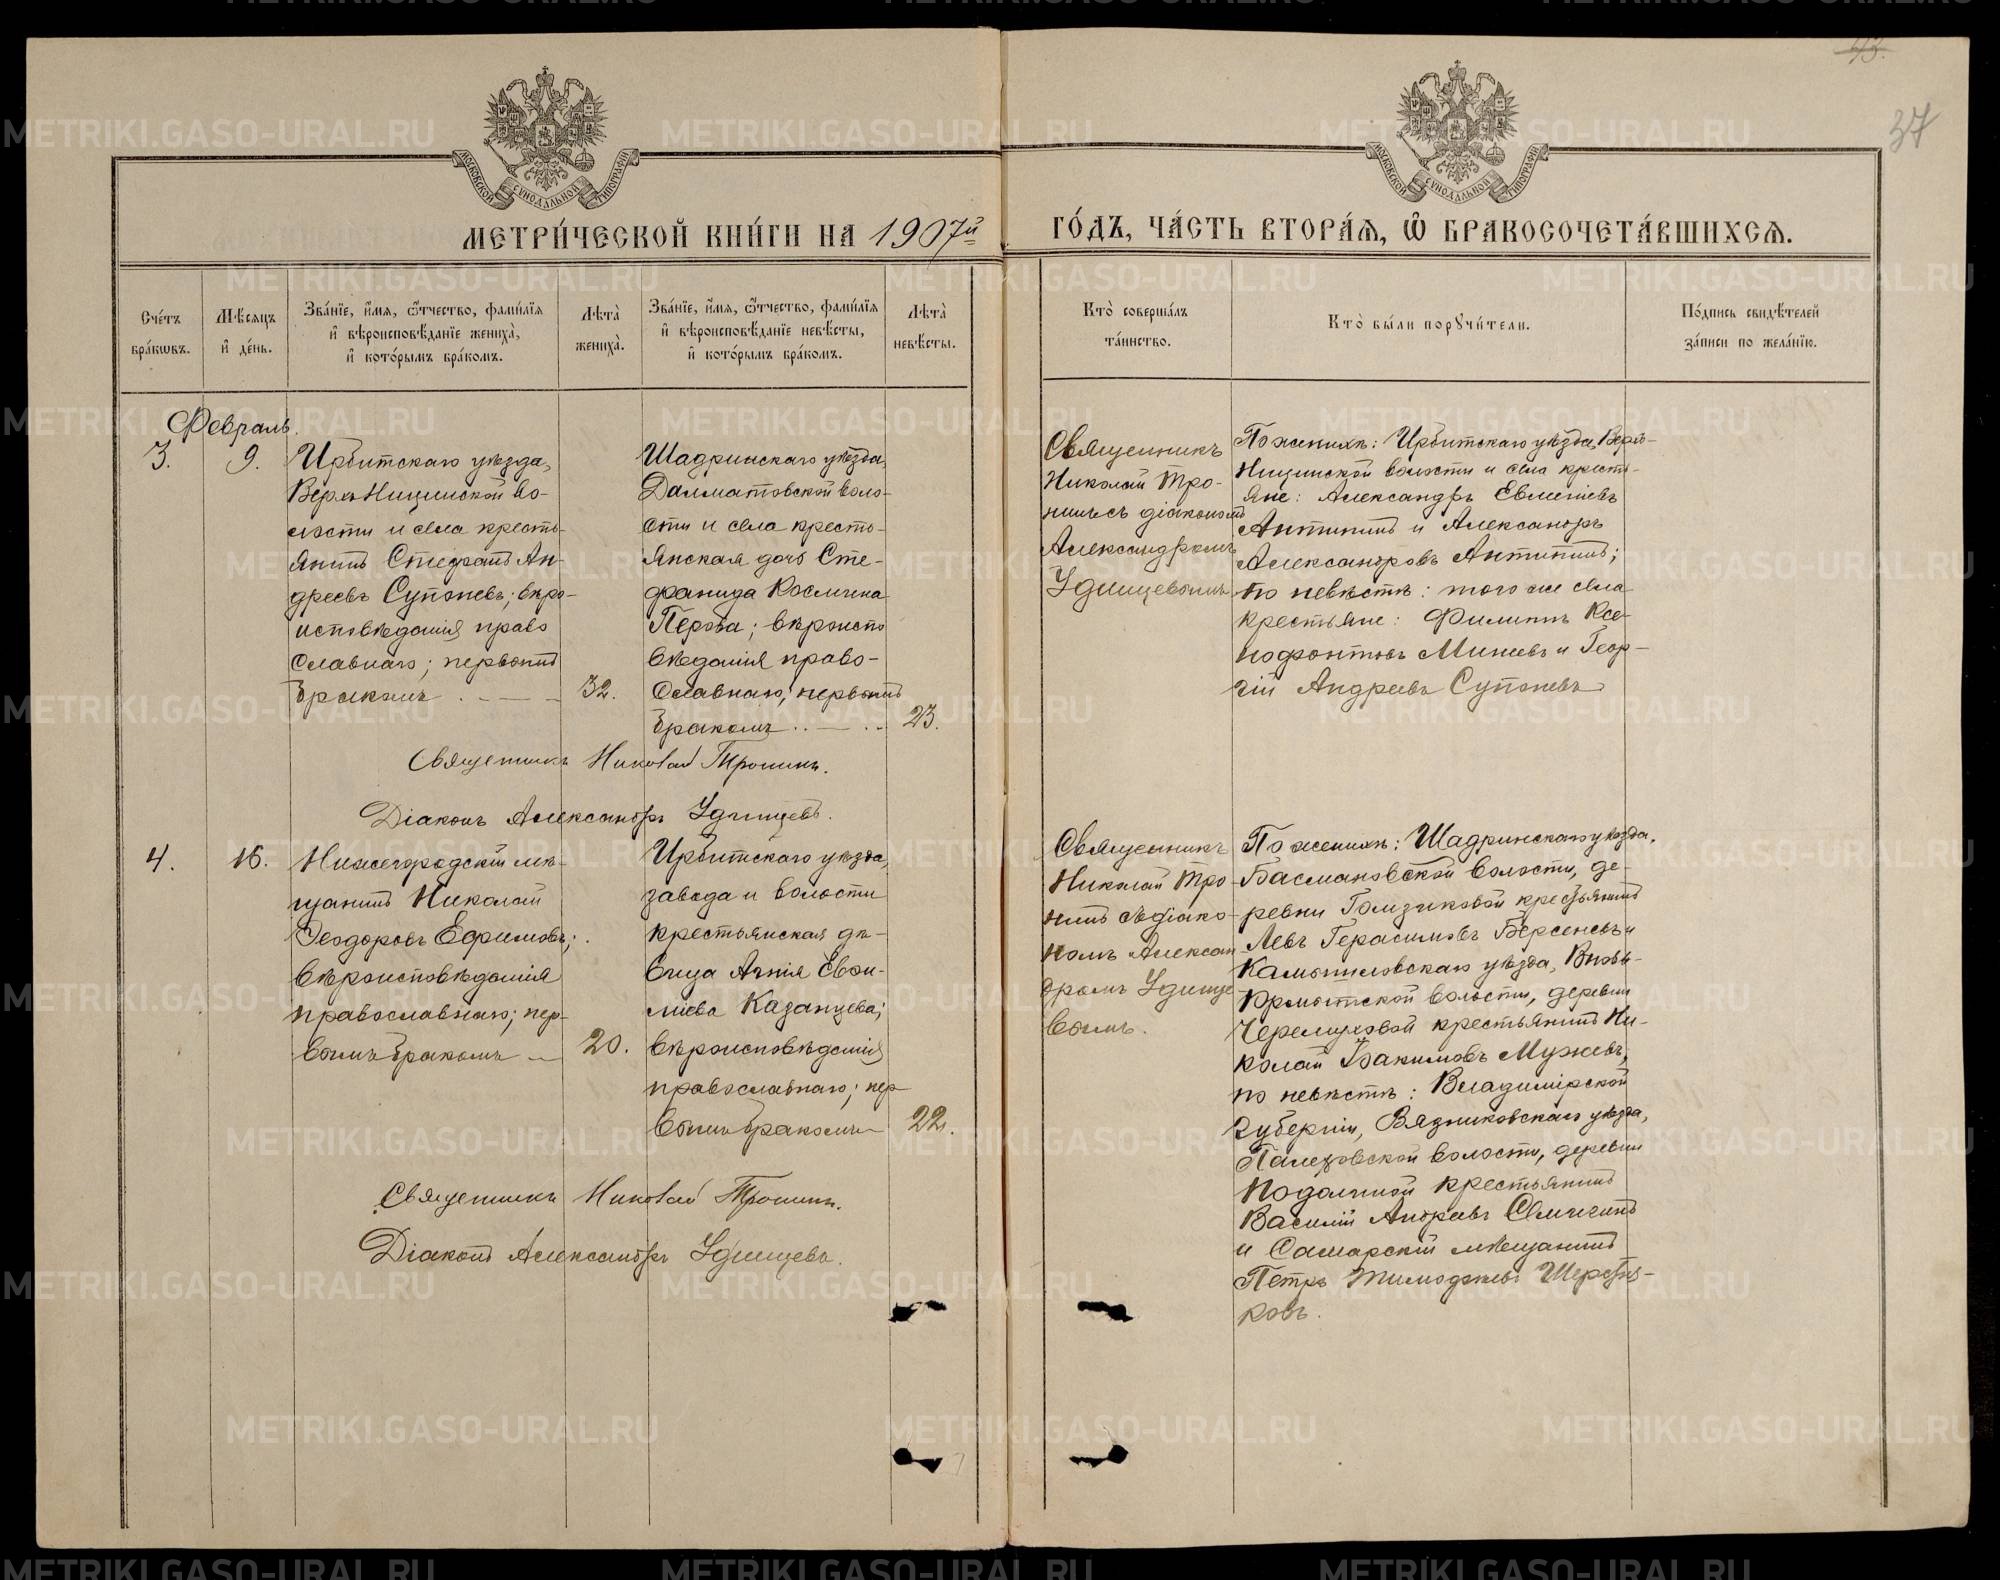 43.
37
МЕТРИ́ЧЕСКОЙ КНИ́ГИ НА 1907й
ГО́ДЪ, ЧА́СТЬ ВТОРА́Ѧ, Ѽ БРАКОСОЧЕТА́ВШИХСѦ.
МОСКОВСКОЙ СѴНОДАЛЬНОЙ ТИПОГРАФІИ
МОСКОВСКОЙ СѴНОДАЛЬНОЙ ТИПОГРАФІИ
Сче́тъ бра́кѡвъ.
Мѣ́сѧцъ и҆ де́нь.
Зва́нїе, и҆́мѧ, ѻ҆́тчество, фами́лїѧ и҆ вѣроисповѣ́данїе жениха̀, и҆ кото́рымъ бра́комъ.
Лѣта̀ жениха̀.
Зва́нїе, и҆́мѧ, ѻ҆́тчество, фами́лїѧ и҆ вѣроисповѣ́данїе невѣ́сты, и҆ кото́рымъ бра́комъ.
Лѣта̀ невѣ́сты.
Кто̀ соверша́лъ та́инство.
Кто̀ бы́ли порꙋчи́тели.
По́дпись свидѣ́телей за́писи по жела́нїю.
Февраль.
3.
9.
Ирбитскаго уѣзда,
Верхъ Ницинской во-
лости и села кресть-
янинъ Стефанъ Ан-
дреевъ Супоневъ; вѣро-
исповѣданія право
славнаго; первымъ
бракомъ
32.
Шадринскаго уѣзда,
Далматовской воло-
сти и села кресть-
янская дочь Сте-
фанида Космина
Перова; вѣроиспо
вѣданія право-
славнаго; первымъ
бракомъ
23.
Священникъ
Николай Тро-
нинъ съ діакономъ
Александромъ
Удинцевымъ
По женихѣ: Ирбитскаго уѣзда, Верхъ-
Ницинской волости и села кресть-
яне: Александръ Евменіевъ
Антипинъ и Александръ
Александровъ Антипинъ;
по невѣстѣ: того же села
крестьяне: Филиппъ Ксе-
нофонтовъ Минеевъ и Геор-
гій Андреевъ Супоневъ
Священникъ Николай Тронинъ.
Діаконъ Александръ Удинцевъ.
4.
16.
Нижегородскій мѣ-
щанинъ Николай
Ѳеодоровъ Ефимовъ;
вѣроисповѣданія
православнаго; пер-
вымъ бракомъ
20.
Ирбитскаго уѣзда,
завода и волости
крестьянская дѣ-
вица Агнія Евси-
гніева Казанцева;
вѣроисповѣданія
православнаго; пер
вымъ бракомъ
22.
Священникъ
Николай Тро-
нинъ съ діако-
номъ Алексан
дромъ Удинце
вымъ.
По женихѣ: Шадринскаго уѣзда,
Басмановской волости, де-
ревни крестьянинъ
Левъ Герасимовъ Берсеневъ и
Камышловскаго уѣзда, Вновь-
Юрмытской волости, деревни
Черемуховой крестьянинъ Ни-
колай Іоакимовъ
по невѣстѣ: Владимірской
губерніи, Вязниковскаго уѣзда,
волости, деревни
крестьянинъ
Василій Андреевъ
и Самарскій мѣщанинъ
Петръ Тимоѳеевъ Шерстня-
ковъ.
Священникъ Николай Тронинъ.
Діаконъ Александръ Удинцевъ.
METRIKI.GASO-URAL.RU